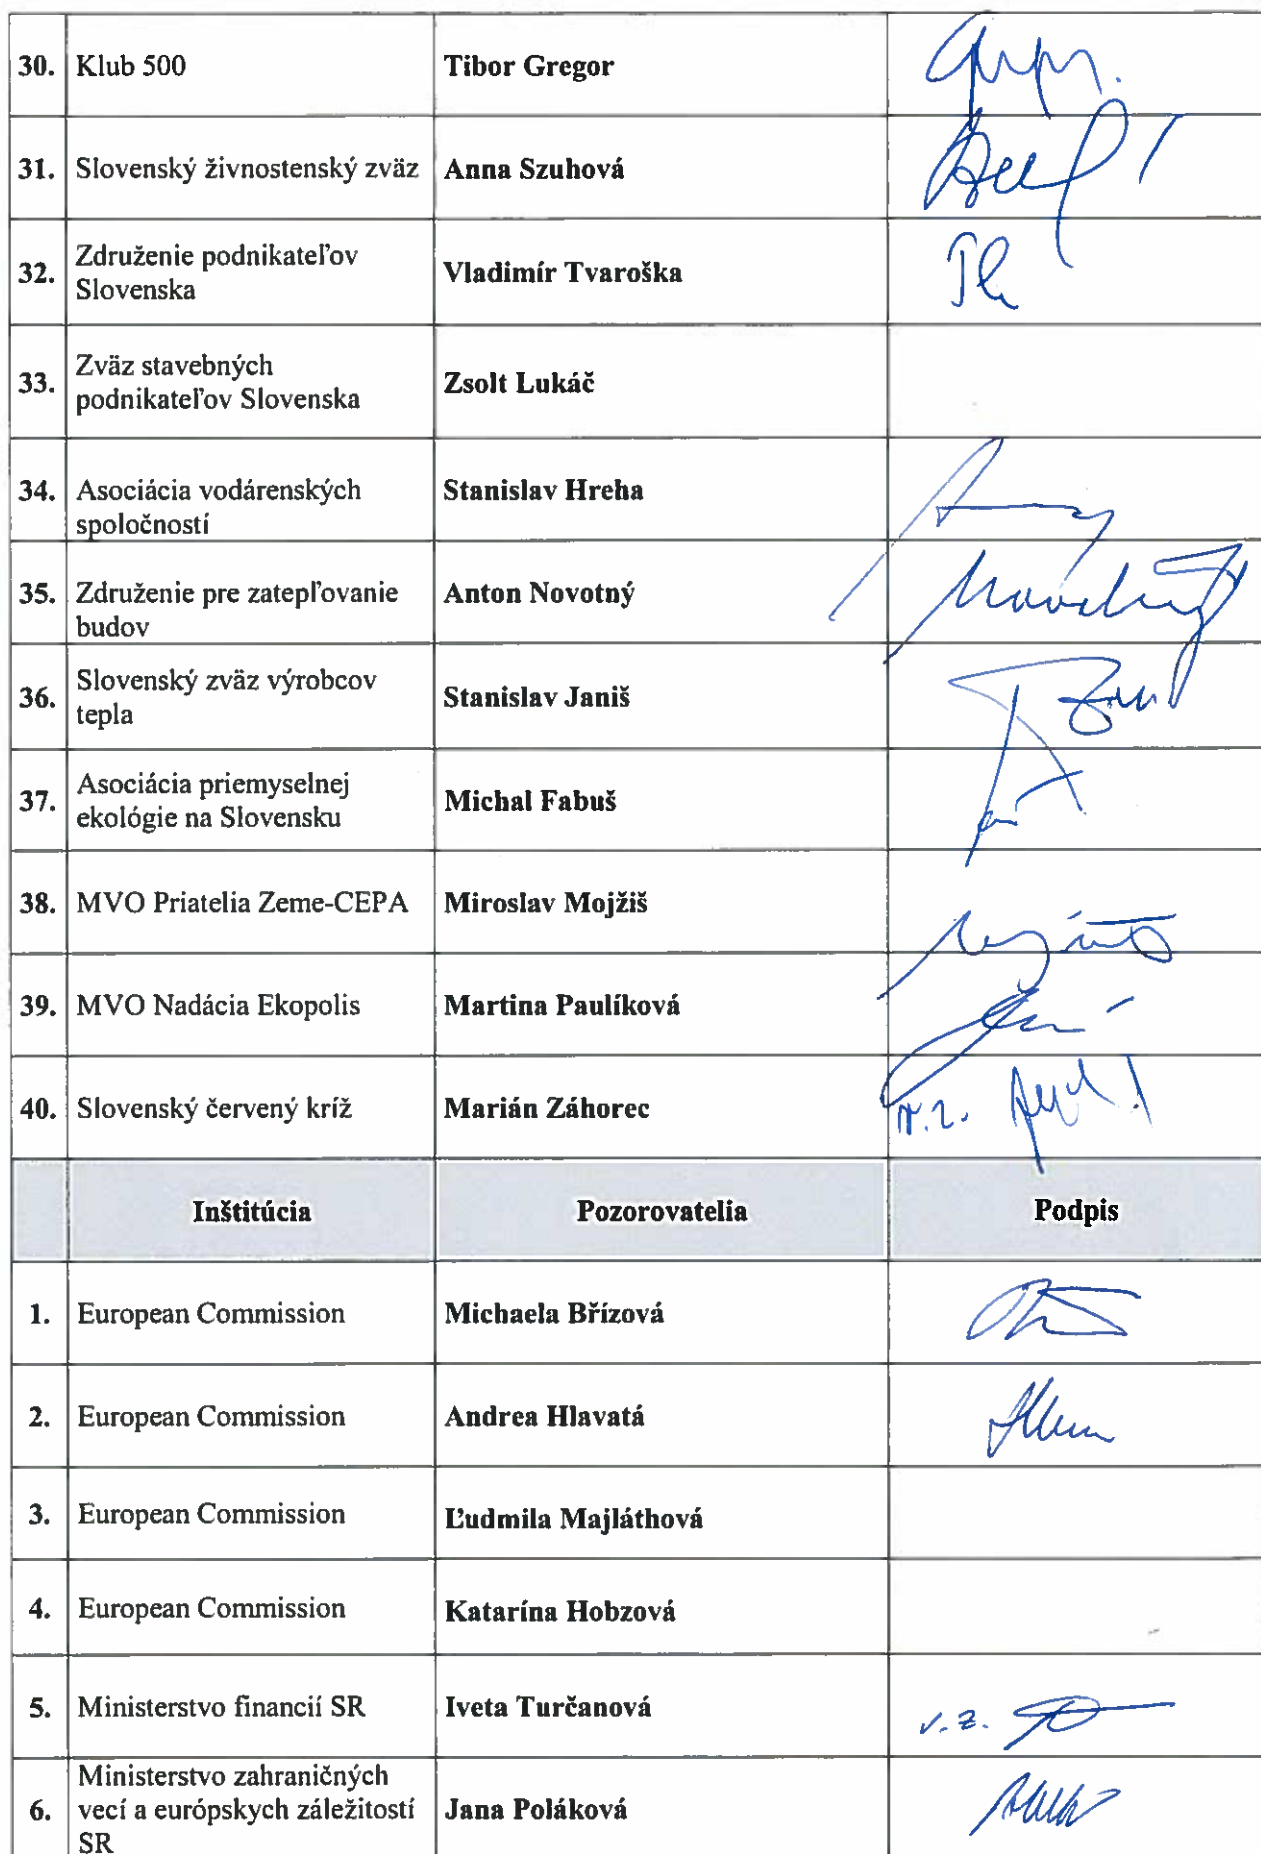 30. Klub 500 Tibor Gregor
31. Slovenský živnostenský zväz Anna Szuhová
32. Združenie podnikateľov
Slovenska Vladimír Tvaroška
33. Zväz stavebných
podnikateľov Slovenska Zsolt Lukáč
34. Asociácia vodárenských
spoločností Stanislav Hreha
35. Združenie pre zatepľovanie
budov Anton Novotný
36. Slovenský zväz výrobcov
tepla Stanislav Janiš
37. Asociácia priemyselnej
ekológie na Slovensku Michal Fabuš
38. MVO Priatelia Zeme-CEPA Miroslav Mojžiš
39. MVO Nadácia Ekopolis Martina Paulíková
40. Slovenský červený kríž Marián Záhorec
Inštitúcia Pozorovatelia Podpis
1. European Commission Michaela Břízová
2. European Commission Andrea Hlavatá
3. European Commission Ľudmila Majláthová
4. European Commission Katarína Hobzová
5. Ministerstvo financií SR Iveta Turčanová v.z.
Ministerstvo zahraničných
6. vecí a európskych záležitostí Jana Poláková
SR